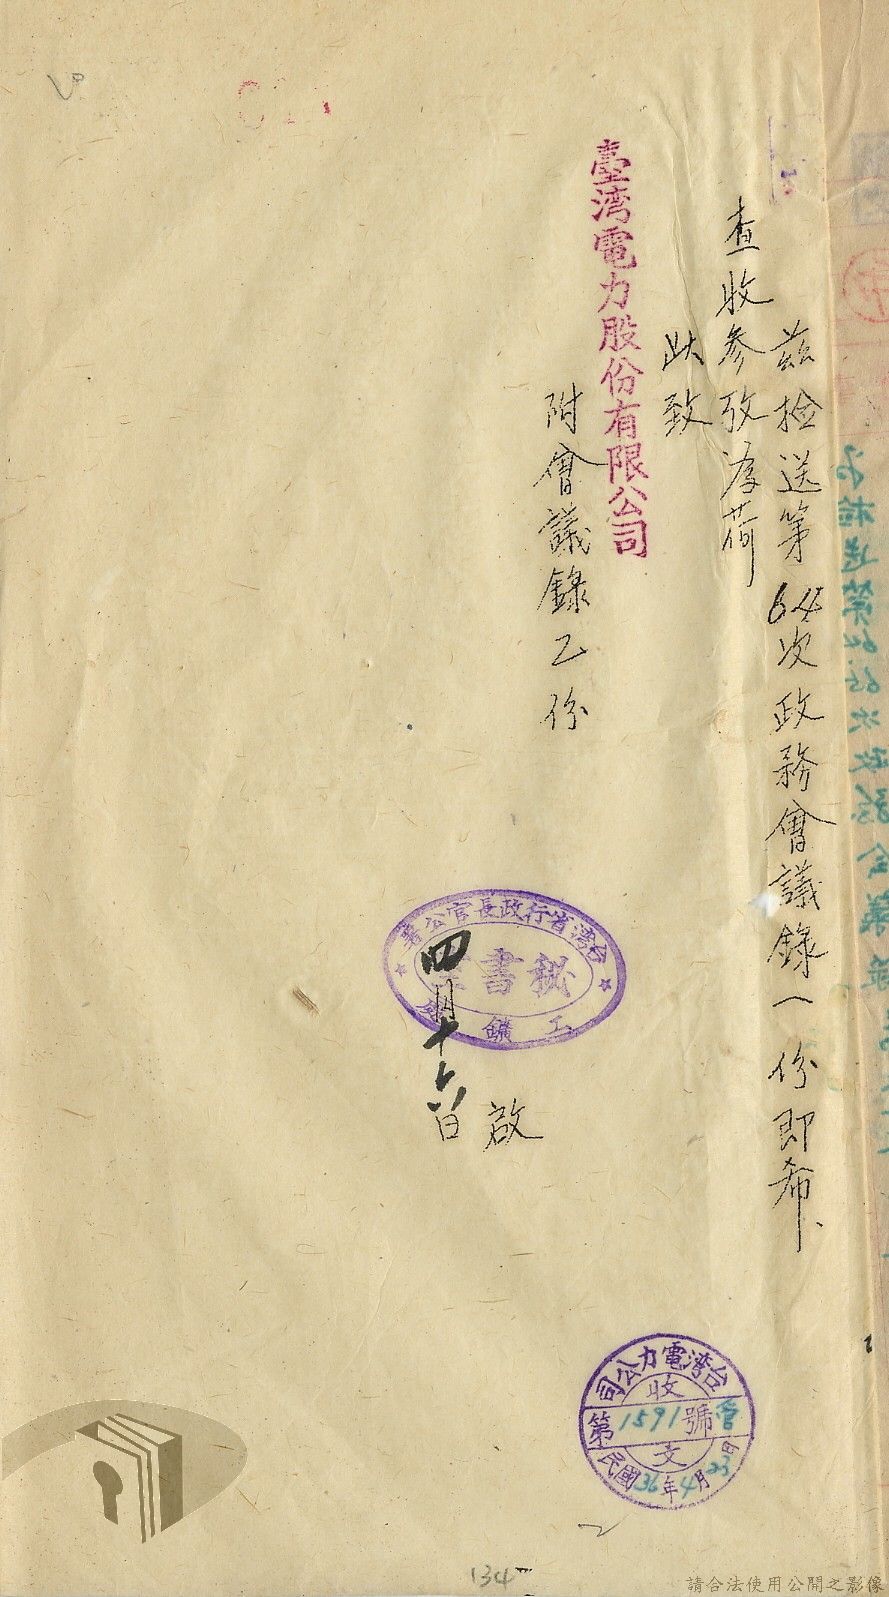 茲检送第64次政務會議錄一份即希、
查收參攷為荷
此致
臺湾電力股份有限公司
附會議錄乙份
台湾省行政長官公署
秘書
工鑛
四月十六日
啟
台湾電力公司
收
第1591號
文
民國36年4月23日
134
請合法使用公開之影像